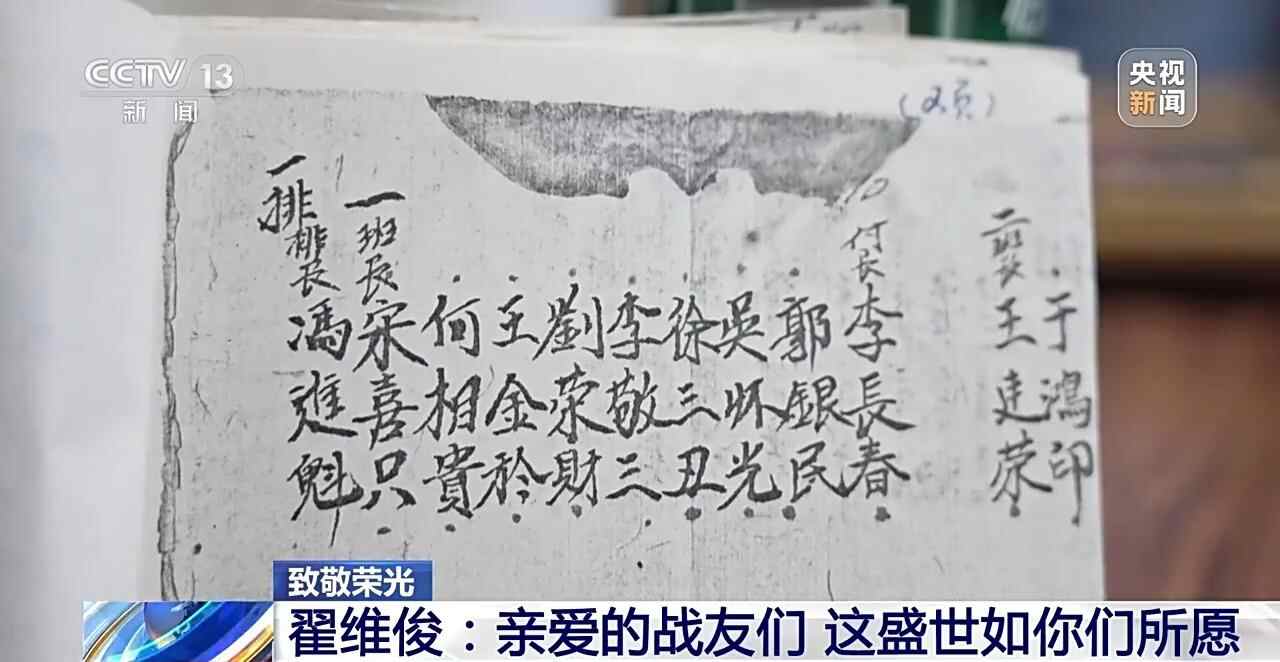 CCTV 13
新闻
央视
新闻
一排
排長
馮進魁
一班长
宋喜只
何相貴
王金於
劉荣財
李敬三
徐三丑
吳怀光
郭銀民
付长
李長春
二班长
王建荣
于鴻印
致敬荣光
翟维俊：亲爱的战友们 这盛世如你们所愿